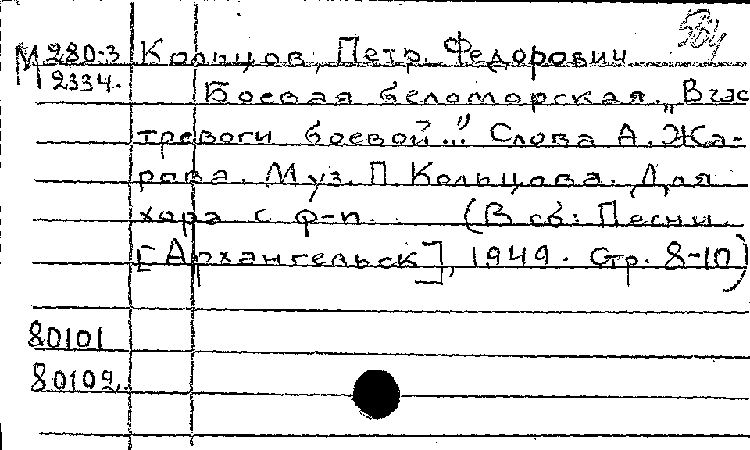 584
М 280-3 Кольцов, Петр Федорович
2334.
Боевая беломорская. „В час
тревоги боевой..." Слова А. Жа-
рова. Муз. П. Кольцова. Для
хора с ф-п. (В сб: Песни
[Архангельск], 1949. Стр. 8-10)
80101
80102